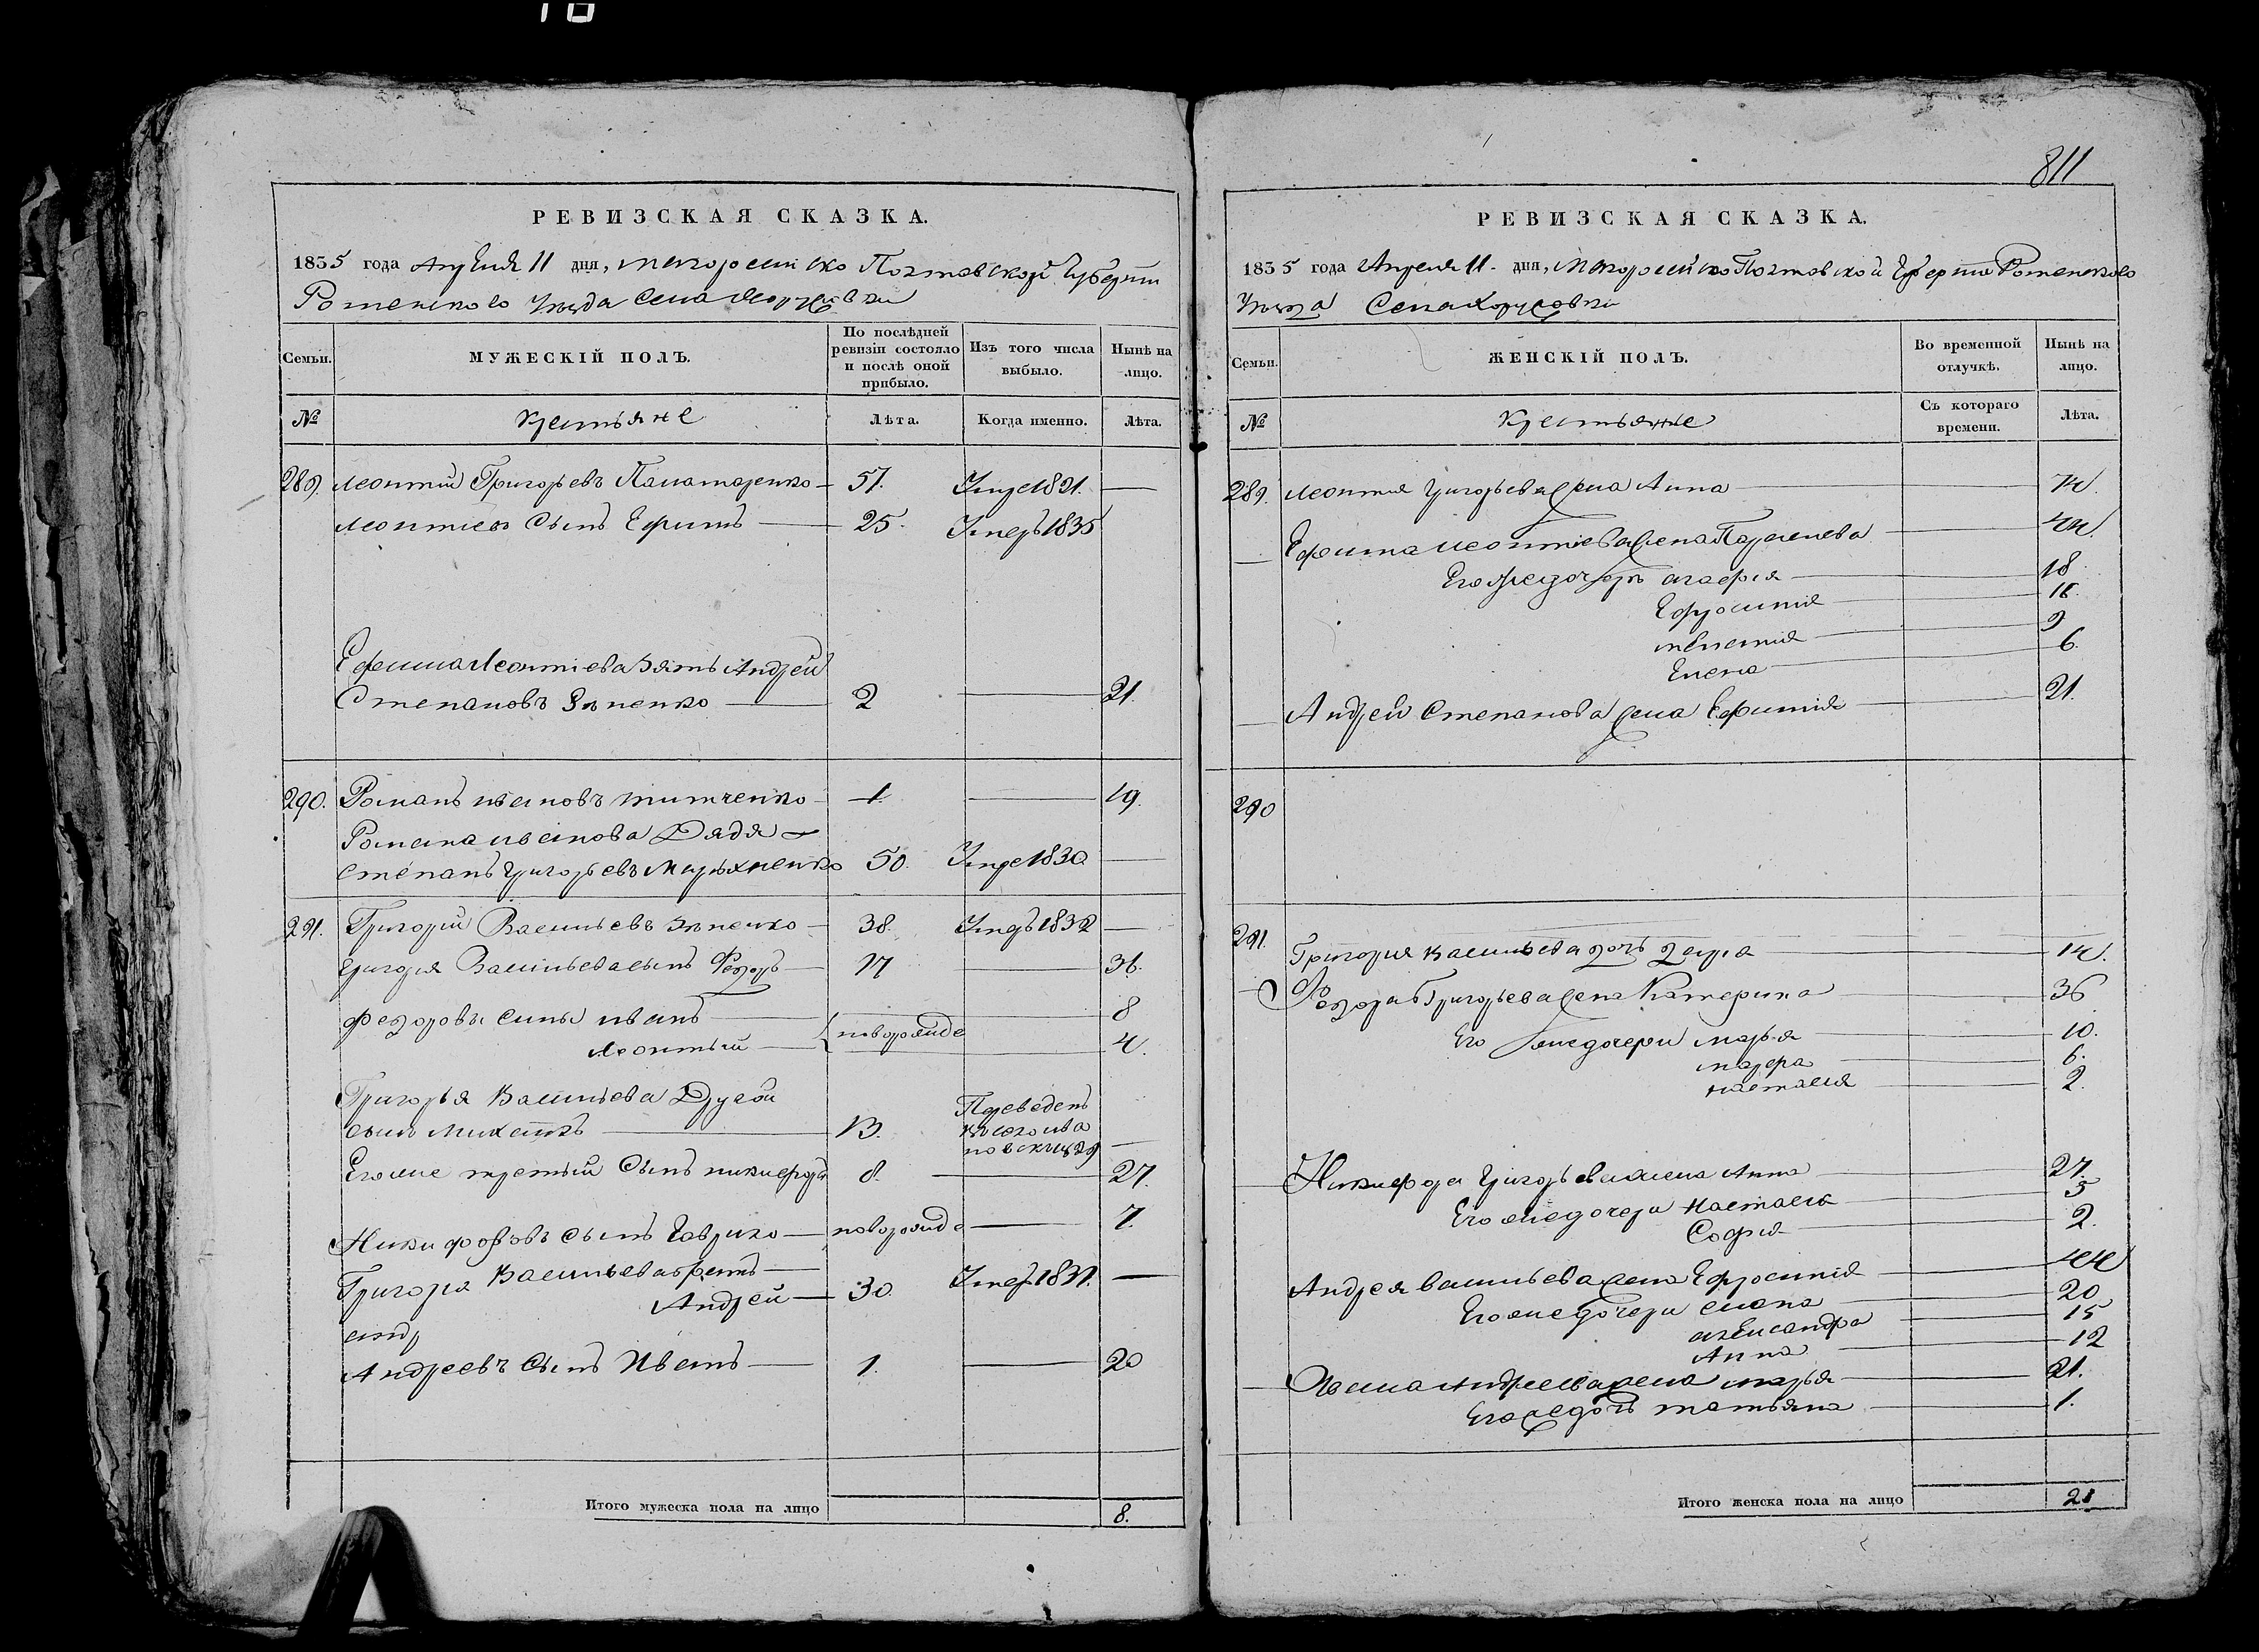 811
РЕВИЗСКАЯ СКАЗКА.
1835 года Апреля 11 дня, Малоросийско Полтавской Губерни
Роменского Уезда Села
Семьи.
МУЖЕСКІЙ ПОЛЪ.
По послѣдней ревизіи состояло и послѣ оной прибыло.
Изъ того числа выбыло.
Нынѣ на лицо.
№
Крестьяне
Лѣта.
Когда именно.
Лѣта.
289. Леонтий Григорьевъ Паламаренко 57. Умре 1821.
Леонтиевъ Сынъ Ефимъ 25. Умеръ 1835
Ефима Леонтіева Зять Андрей
Степановъ 2 21.
290. Романъ Ивановъ Тимченко 1. 19.
Романа Иванова Дядя
Степанъ Григорьевъ 50. Умре 1830.
291. Григорий Васильевъ 38. Умеръ 1832
Григорія Васильева сынъ Федоръ 17 36.
Федоровы сины Иванъ новорожде 8
Леонтий 4.
Григорья Васильева Другой
сынъ 13. Переведенъ
Его же третий Сынъ Никифоръ 8. 27.
Никифоровъ Сынъ Гаврило новорожде 7.
Григорія Васильева братъ
Андрей 30. Умер 1831.
андр
Андреевъ Сынъ Иванъ 1. 20
Итого мужеска пола на лицо 8.
РЕВИЗСКАЯ СКАЗКА.
1835 года Апреля 11. дня, Малоросийско Полтавской Губерни Роменского
Уезда Села Хоружовки
Семьи.
ЖЕНСКІЙ ПОЛЪ.
Во временной отлучкѣ.
Нынѣ на лицо.
№
Крестьяне
Съ котораго времени.
Лѣта.
289. Леонтия Григорьева жена Анна
Ефима Леонтіева жена 44.
Его же дочеръ Агафия 18
Ефросиния 16.
9
Елена 6.
Андрей Степанова жена Ефимія 21.
290
291. Григория Васильева дочь 14.
Федора Григорьева жена Катерина 36
Его же дочери Марья 10.
Марфа 6.
Настасия 2.
Никифора Григорьева жена Анна 27.
Его же дочери Настасия 5
София 2.
Андрея Васильева жена Ефросиния 44
Его же дочери Елена 20
Александра 15
Анна 12
Ивана Андреева жена Марья 21.
Его же дочь Татьяна 1.
Итого женска пола на лицо 21